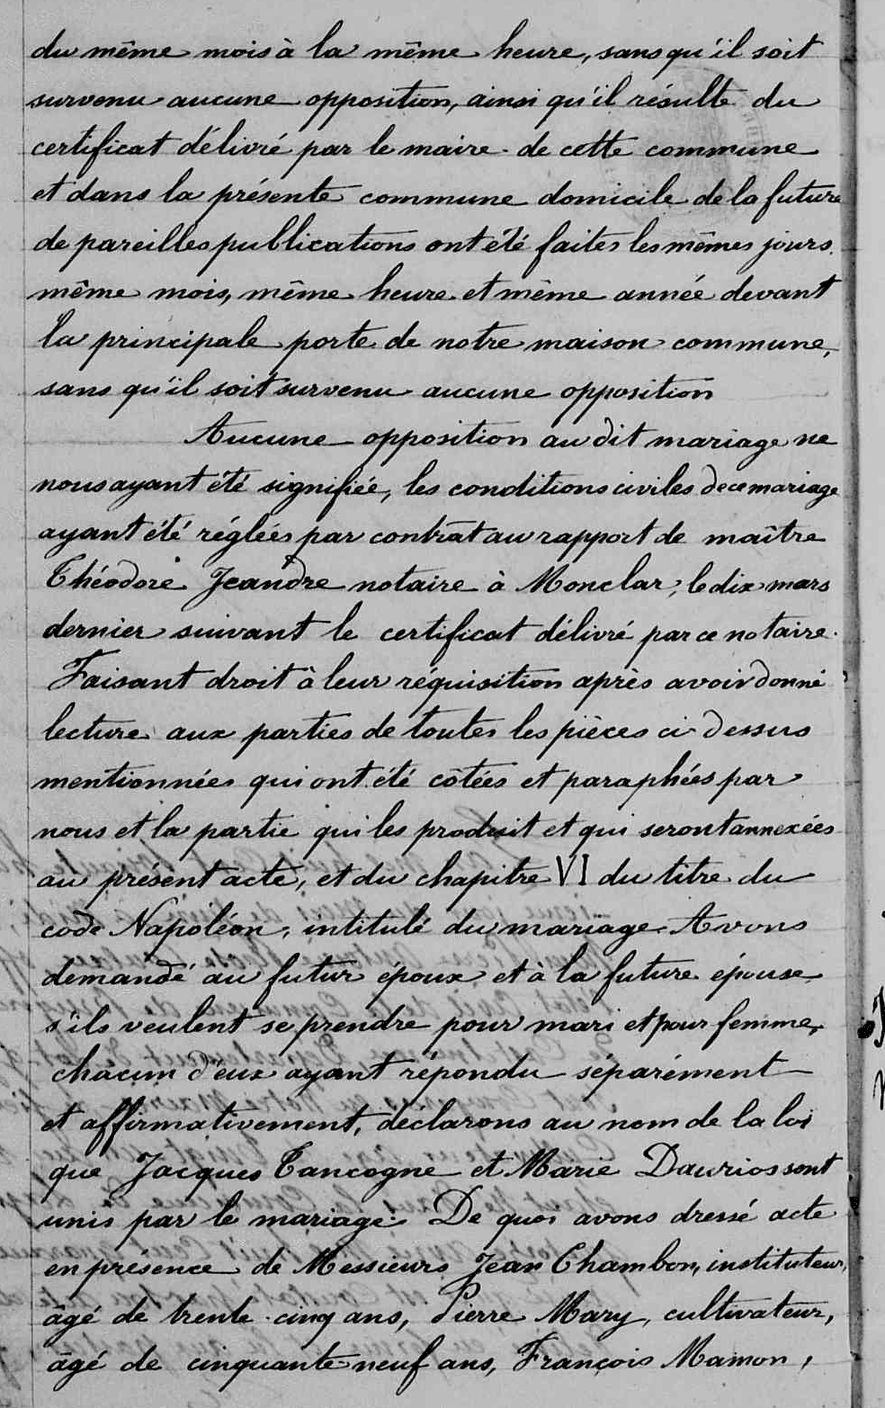 du même mois à la même heure, sans qu'il soit
survenu aucune opposition, ainsi qu'il résulte du
certificat délivré par le maire de cette commune
et dans la présente commune domicile de la future
de pareilles publications ont été faites les mêmes jours,
même mois, même heure et même année devant
la principale porte de notre maison commune,
sans qu'il soit survenu aucune opposition
Aucune opposition au dit mariage ne
nous ayant été signifiée, les conditions civiles de ce mariage
ayant été réglées par contrat au rapport de maître
Théodore Jeandre notaire à Monclar, le dix mars
dernier suivant le certificat délivré par ce notaire.
Faisant droit à leur réquisition après avoir donné
lecture aux parties de toutes les pièces ci dessus
mentionnées qui ont été côtées et paraphées par
nous et la partie qui les produit et qui seront annexées
au présent acte, et du chapitre VI du titre du
code Napoléon, intitulé du mariage. Avons
demandé au futur époux et à la future épouse
s'ils veulent se prendre pour mari et pour femme,
chacun d'eux ayant répondu séparément
et affirmativement, déclarons au nom de la loi
que Jacques Tancogne et Marie Daurios sont
unis par le mariage. De quoi avons dressé acte
en présence de Messieurs Jean Chambon, instituteur,
âgé de trente-cinq ans, Pierre Mary, cultivateur,
âgé de cinquante-neuf ans, François Mamon,